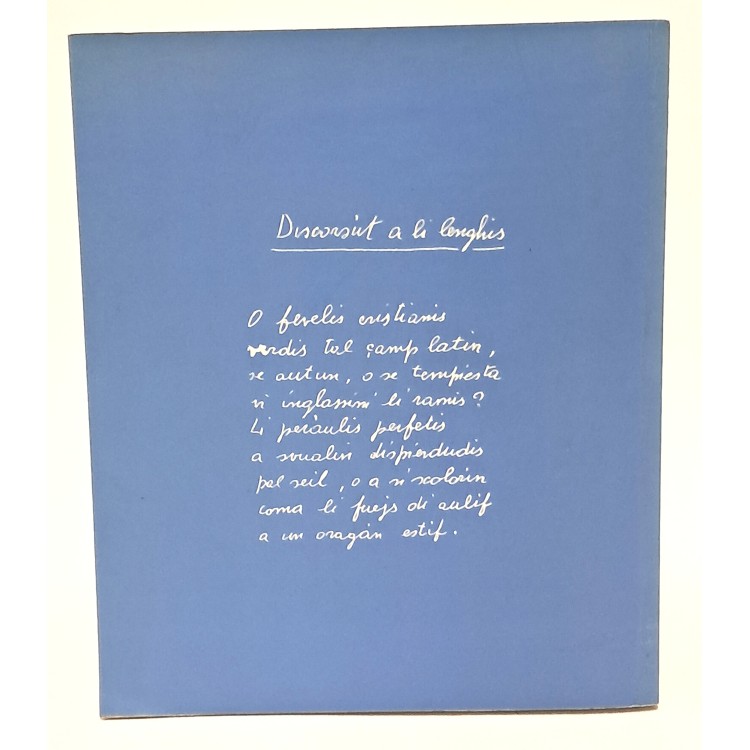 Discorsùt a li lenghis
O fevelis cristianis
verdis tal çamp latin,
se autun, o se tempiesta
vi inglassini li ramis?
Li peràulis perfetis
a svualin dispierdudis
pal seil, o a si scolorin
coma li fuejs di aulif
a un oragàn estif.